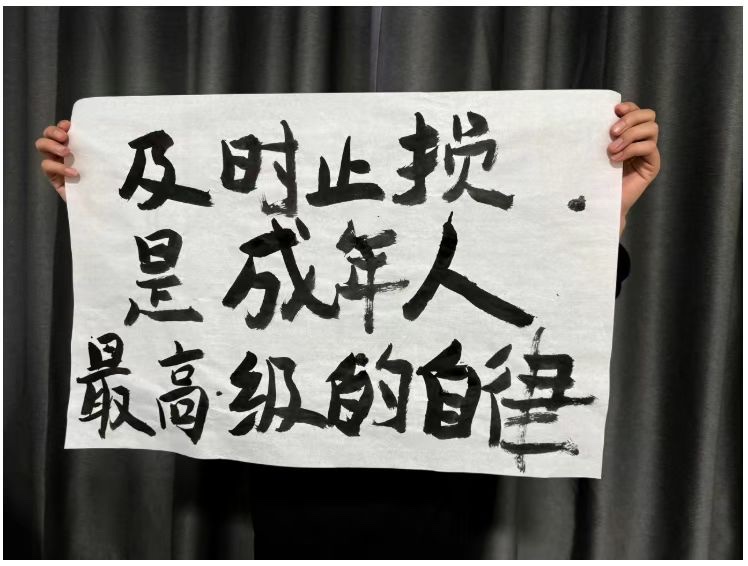 及时止损
是成年人
最高级的自律